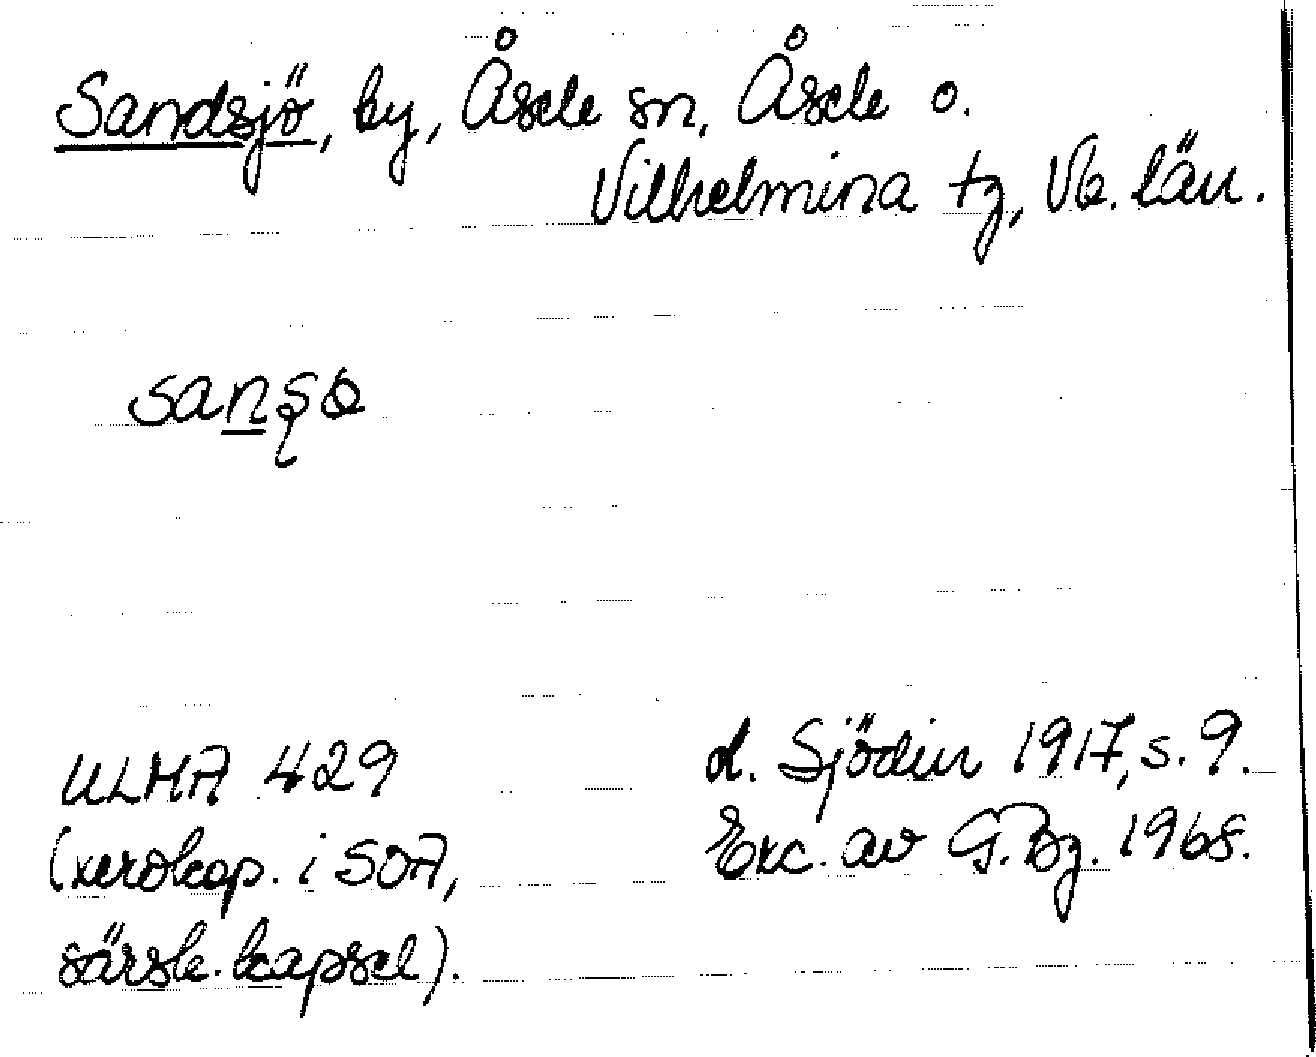 Sandsjö, by, Åsele sn, Åsele o.
Vilhelmina tg, Vb. län.
ULMA 429
(xerokop. i SOA,
särsk. kapsel).
d. Sjödin 1917, s. 9.
Exc. av G. Bg. 1968.